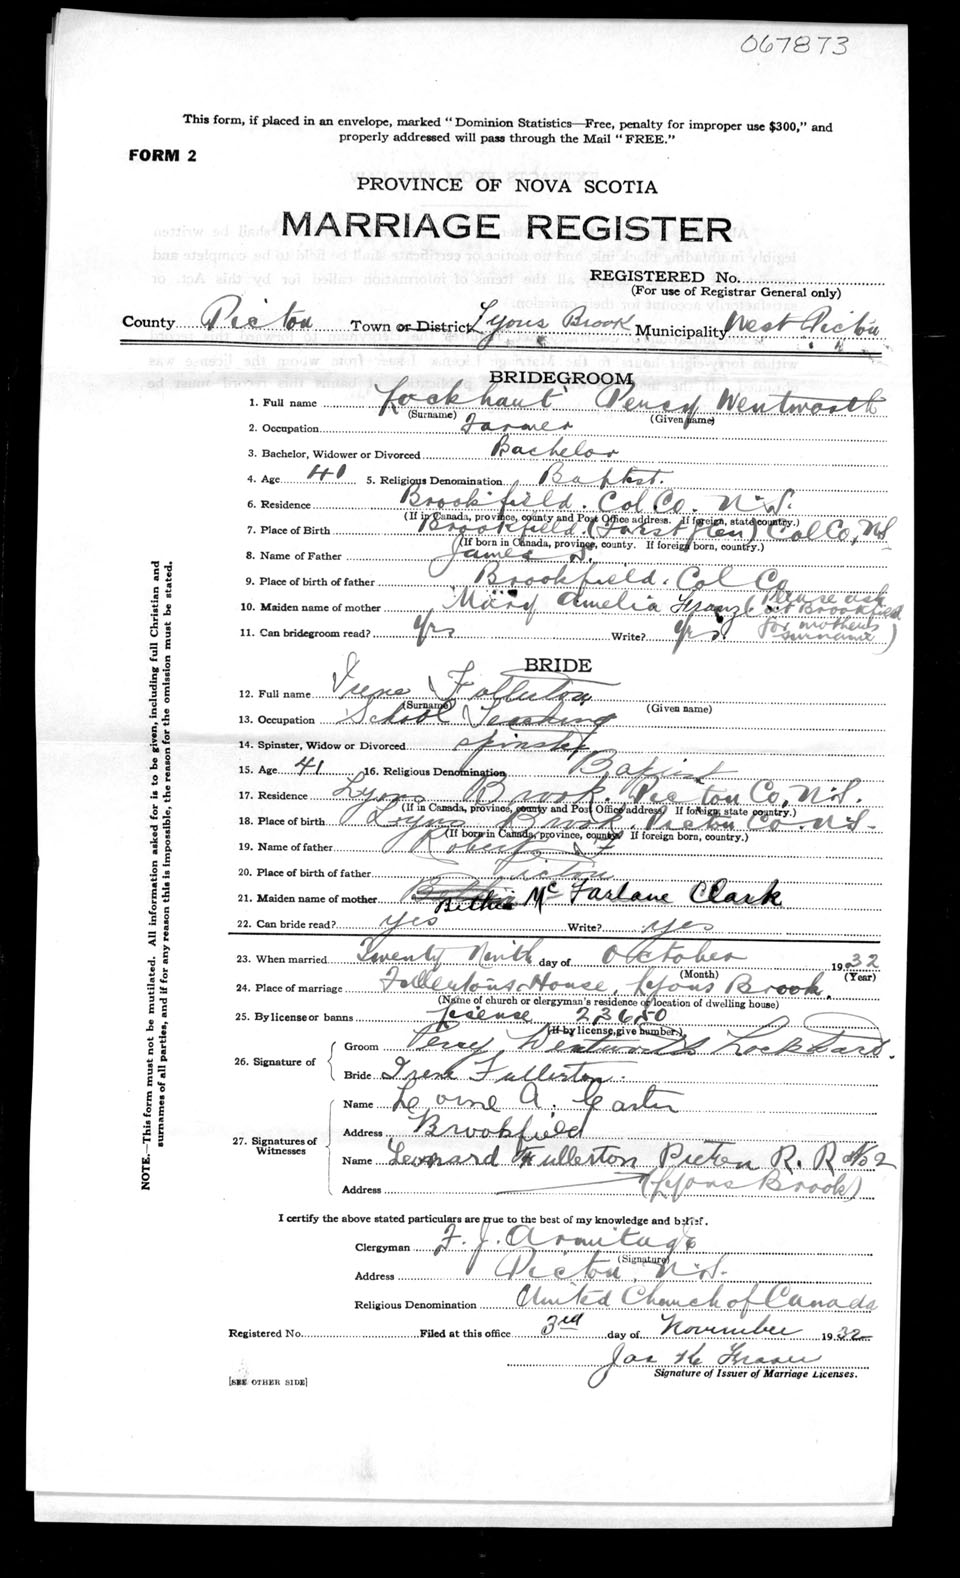 067873
This form, if placed in an envelope, marked "Dominion Statistics—Free, penalty for improper use $300," and
properly addressed will pass through the Mail "FREE."
FORM 2
PROVINCE OF NOVA SCOTIA
MARRIAGE REGISTER
REGISTERED No.
(For use of Registrar General only)
County Pictou Town or District Lyons Brook Municipality West Pictou
BRIDEGROOM
1. Full name Lockhart Percy Wentworth
(Surname) (Given name)
2. Occupation Farmer
3. Bachelor, Widower or Divorced Bachelor
4. Age 40 5. Religious Denomination Baptist.
6. Residence Brookfield. Col. Co. N.S.
(If in Canada, province, county and Post Office address. If foreign, state country.)
7. Place of Birth Brookfield (Forest Glen) Col Co, NS
(If born in Canada, province, county. If foreign born, country.)
8. Name of Father James
9. Place of birth of father Brookfield. Col Co
10. Maiden name of mother Mary Amelia (Please ask at Brookfield
11. Can bridegroom read? Yes Write? Yes for mothers surname)
BRIDE
12. Full name Irene Fullerton
(Surname) (Given name)
13. Occupation School Teaching
14. Spinster, Widow or Divorced Spinster
15. Age 41 16. Religious Denomination Baptist
17. Residence Lyons Brook, Pictou Co, N.S.
(If in Canada, province, county and Post Office address. If foreign, state country.)
18. Place of birth Lyons Brook, Pictou Co. N.S.
(If born in Canada, province, county. If foreign born, country.)
19. Name of father Robert
20. Place of birth of father Pictou
21. Maiden name of mother Bithie McFarlane Clark
22. Can bride read? yes Write? yes
23. When married Twenty Ninth day of October 1932
(Month) (Year)
24. Place of marriage Fullertons House, Lyons Brook.
(Name of church or clergyman's residence or location of dwelling house)
25. By license or banns License 23650
(If by license, give number.)
26. Signature of
Groom Percy Wentworth Lockhart.
Bride Irene Fullerton.
27. Signatures of Witnesses
Name Lorne A. Carter
Address Brookfield
Name Leonard Fullerton Picton R. R No 2
Address (Lyons Brook)
I certify the above stated particulars are true to the best of my knowledge and belief.
Clergyman F. J. Armitage
(Signature)
Address Pictou, N.S.
Religious Denomination United Church of Canada
Registered No. Filed at this office 3rd day of November 1932
Jas K Fraser
Signature of Issuer of Marriage Licenses.
[SEE OTHER SIDE]
NOTE.—This form must not be mutilated. All information asked for is to be given, including full Christian and
surnames of all parties, and if for any reason this is impossible, the reason for the omission must be stated.